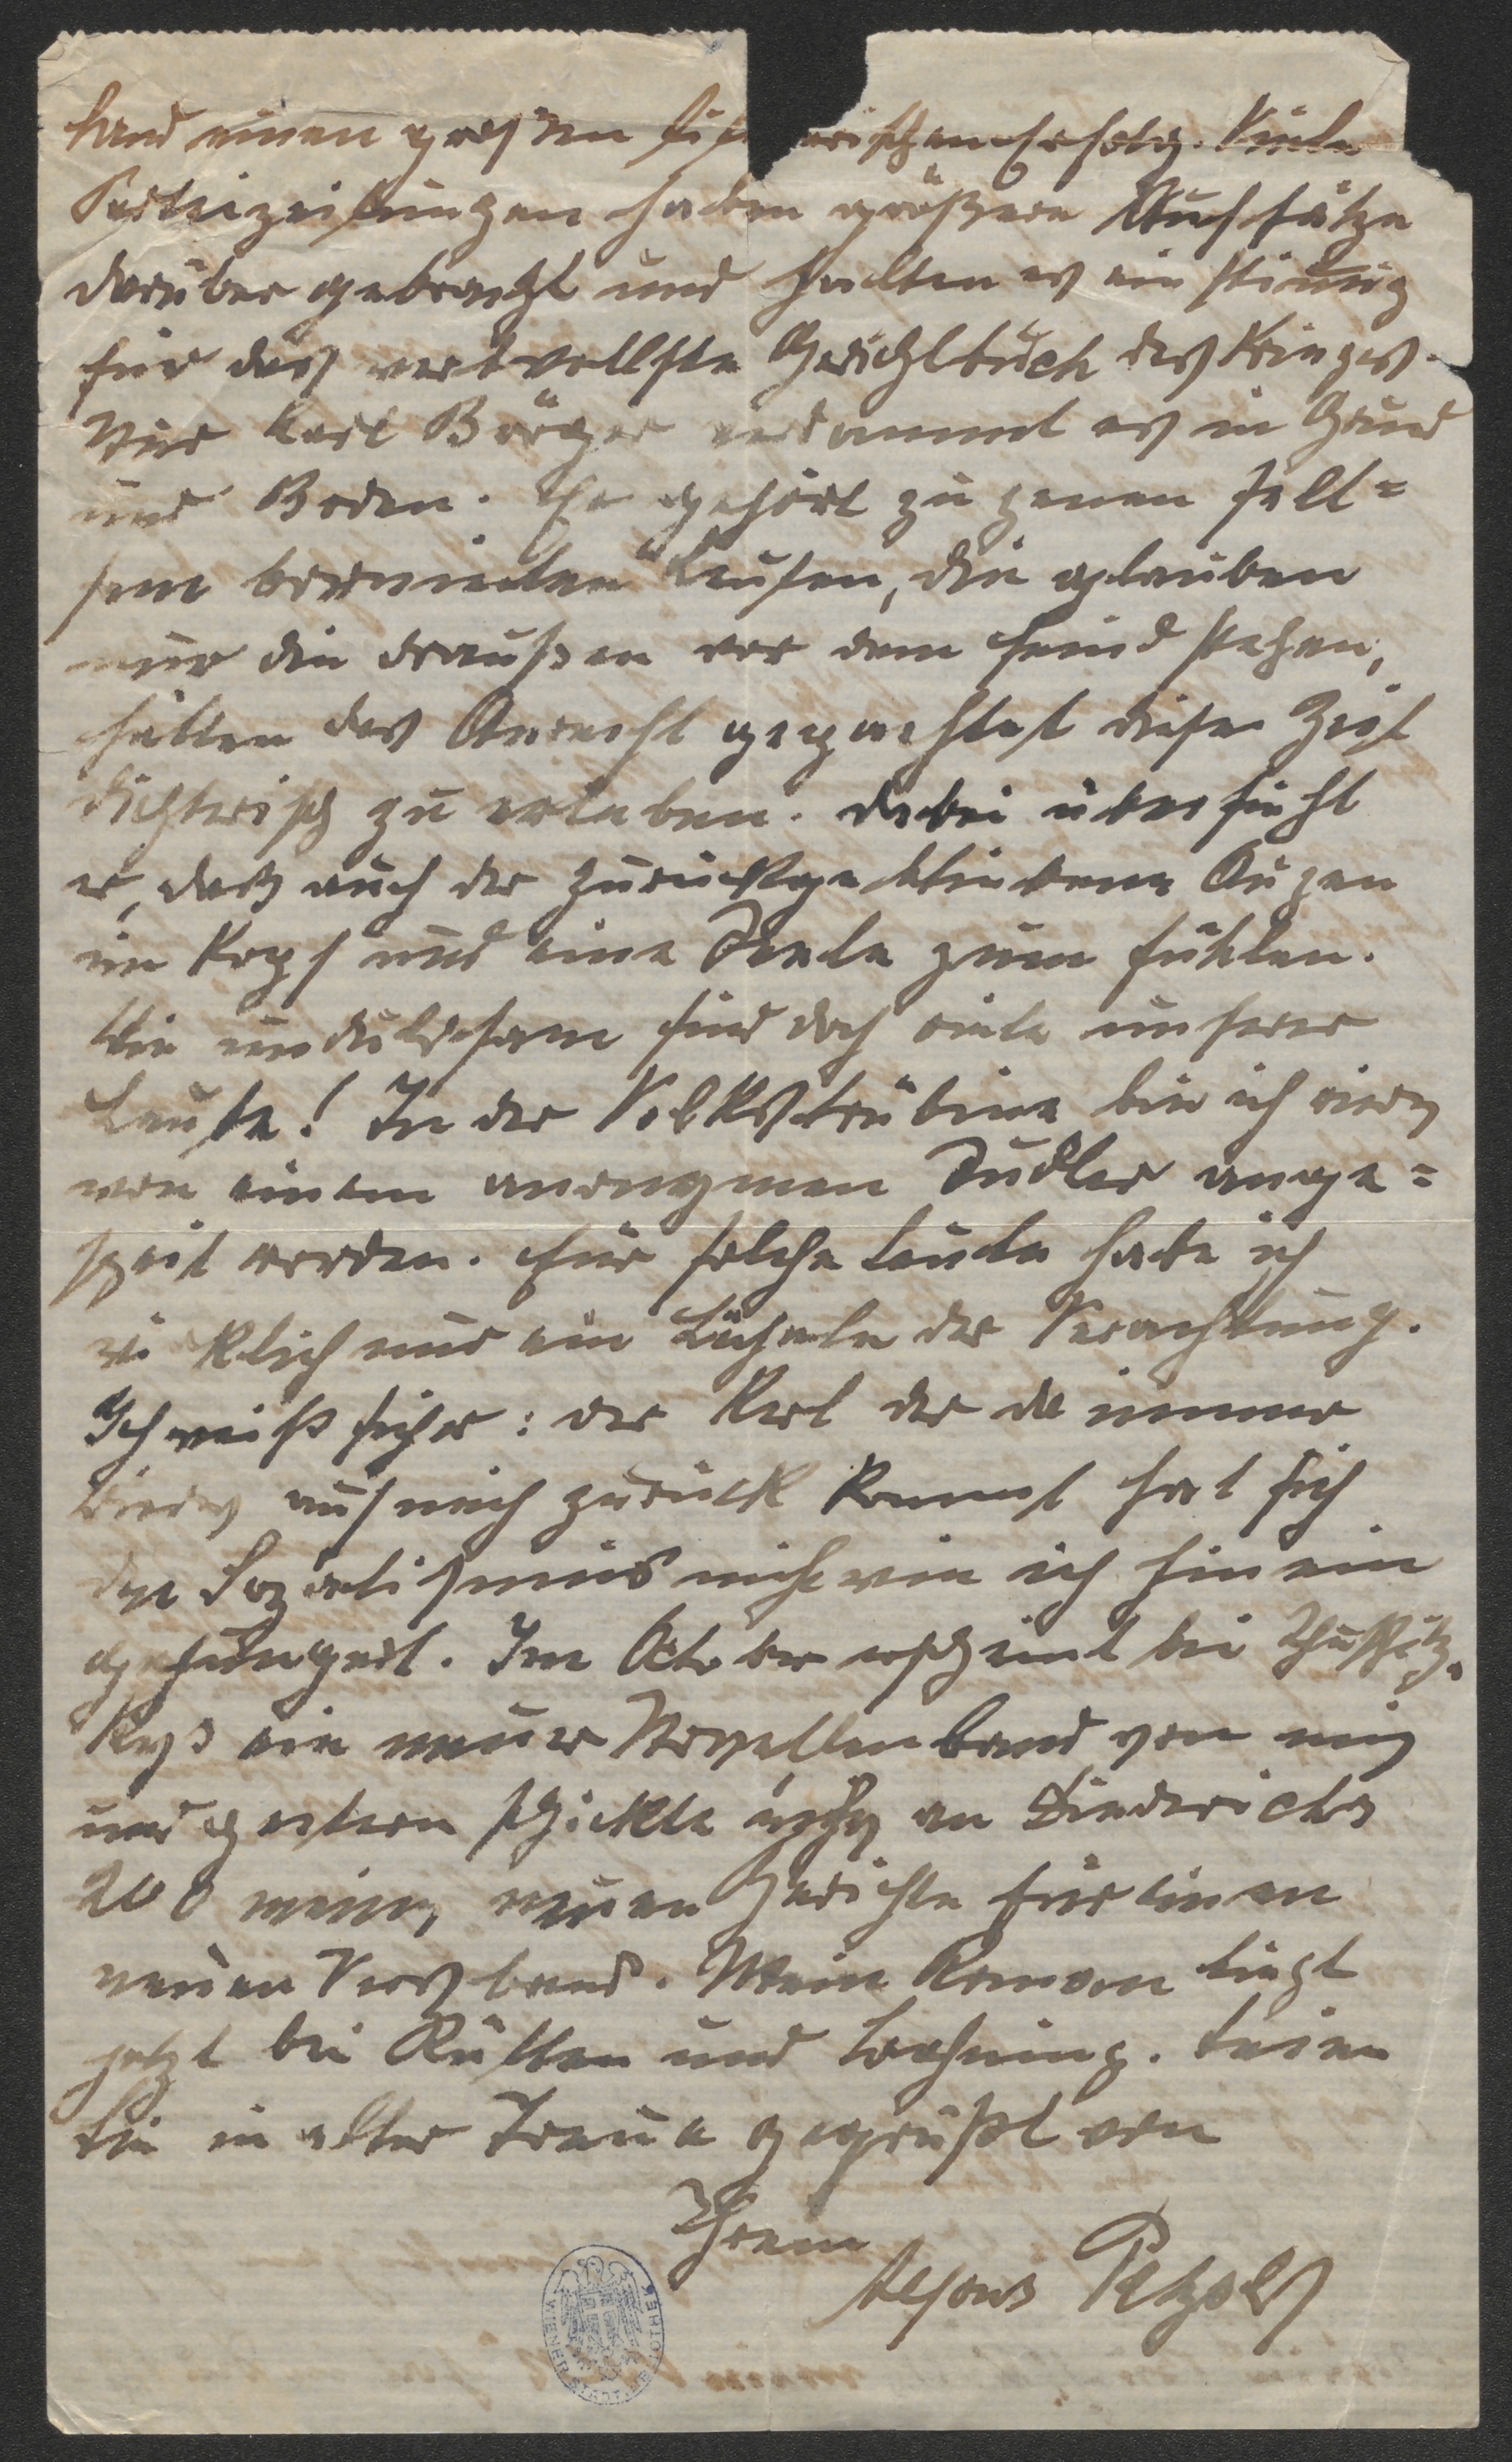 land einen großen lit erischen Erfolg. Viele
Parteizeitungen haben größere Aufsätze
darüber gebracht und halten es ein stimmig
für das wertvollste Gedichtbuch des Krieges.
Nur Karl Bröger verdammt es in Grund
und Boden. Er gehört zu jenen selt=
sam bornierten Leuten, die glauben
nur die draußen vor dem Feind stehen,
hätten das Anrecht gepachtet diese Zeit
dichterisch zu erleben. Dabei übersieht
er, daß auch der Zurückgebliebene Augen
im Kopf und eine Seele zum fühlen.
Wie unduldsam sind doch viele unserer
Leute! In der Volkstribüne bin ich
von einem anonymen Sudler ange=
speit worden. Für solche Leute habe ich
wirklich nur ein Lächeln der Verachtung.
Ich weiß sicher: der Kerl der da immer
wieder auf mich zurück kommt hat sich
den Sozialismus nicht wie ich hinein
gehungert. Im Oktober erscheint bei
ein neuer Novellenband von mir
und gestern schickte ich an Diederichs
200 meiner neuen Gedichte für einen
neuen Versband. Mein Roman liegt
jetzt bei Rütten und Loening. Seien
Sie in alter Treue gegrüßt von
Ihrem
Alfons Petzold
WIENER STADTBIBLIOTHEK